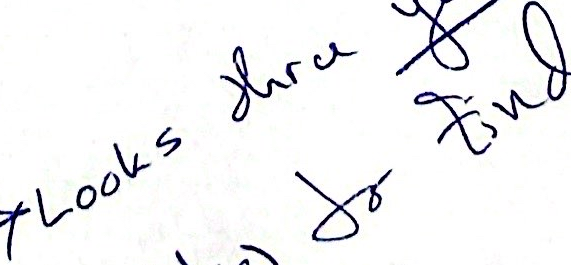 *Looks thru
to find